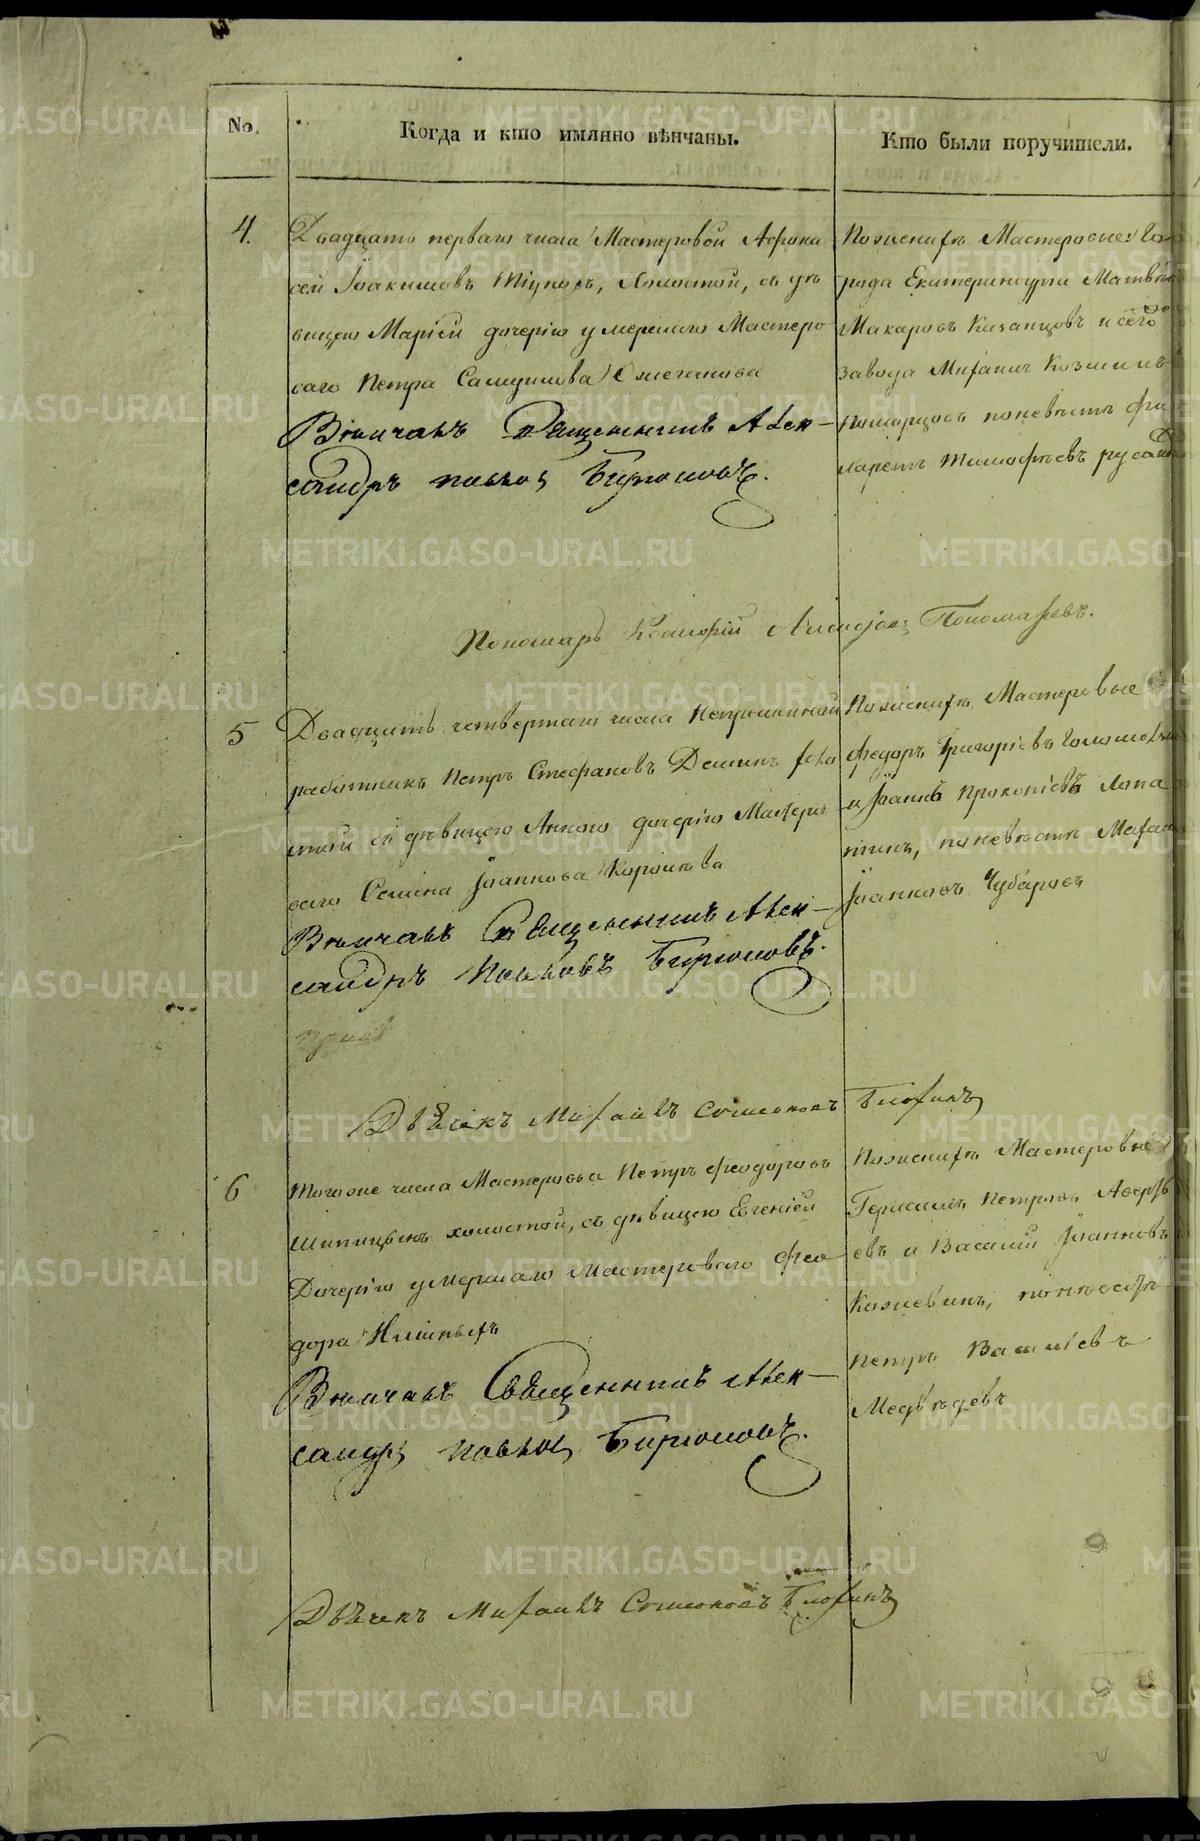 No.
Когда и кто имянно вѣнчаны.
Кто были поручители.
4.
Двадцать перваго числа Мастеровой Афона
сей Іоакимовъ Тіуновъ, Холостой, съ дѣ
вицею Маріей дочерію умершаго Мастеро
ваго Петра Самуилова
Вѣнчалъ Священникъ Алек-
сандръ Павловъ Бирюковъ.
По женихѣ Мастеровые: Го
рода Екатеринбурга Матвѣй
Макаровъ Казанцовъ и сего
завода Михаилъ Козминъ
по невѣстѣ Фи
ларетъ Тимофѣевъ
Пономарь Александръ Пономаревъ.
5
Двадцать четвертаго числа Непремѣнный
работникъ Петръ Стефановъ Деминъ холо
стой съ дѣвицею Анною дочерію Мастеро
ваго Семена Іоаннова Коровкова
Вѣнчалъ Священникъ Алек-
сандръ Павловъ Бирюковъ.
По женихѣ Мастеровые
Федоръ Григоріевъ
и Іоаннъ Прокопіевъ Лопа
тинъ, по невѣстѣ
Іоанновъ Чубаровъ
Дьячекъ Михаилъ Симоновъ Блохинъ
6
Того же числа Мастеровой Петръ Феодоровъ
Шипицынъ холостой, съ дѣвицею Евгеніей
Дочерію умершаго Мастероваго Фео
дора
Вѣнчалъ Священникъ Алек-
сандръ Павловъ Бирюковъ.
По женихѣ Мастеровые
Герасимъ Петровъ Аверкі
евъ и Василій Іоанновъ
Кожевинъ, по невѣстѣ
Петръ Василіевъ
Медвѣдевъ
Дьячекъ Михаилъ Симоновъ Блохинъ
METRIKI.GASO-URAL.RU